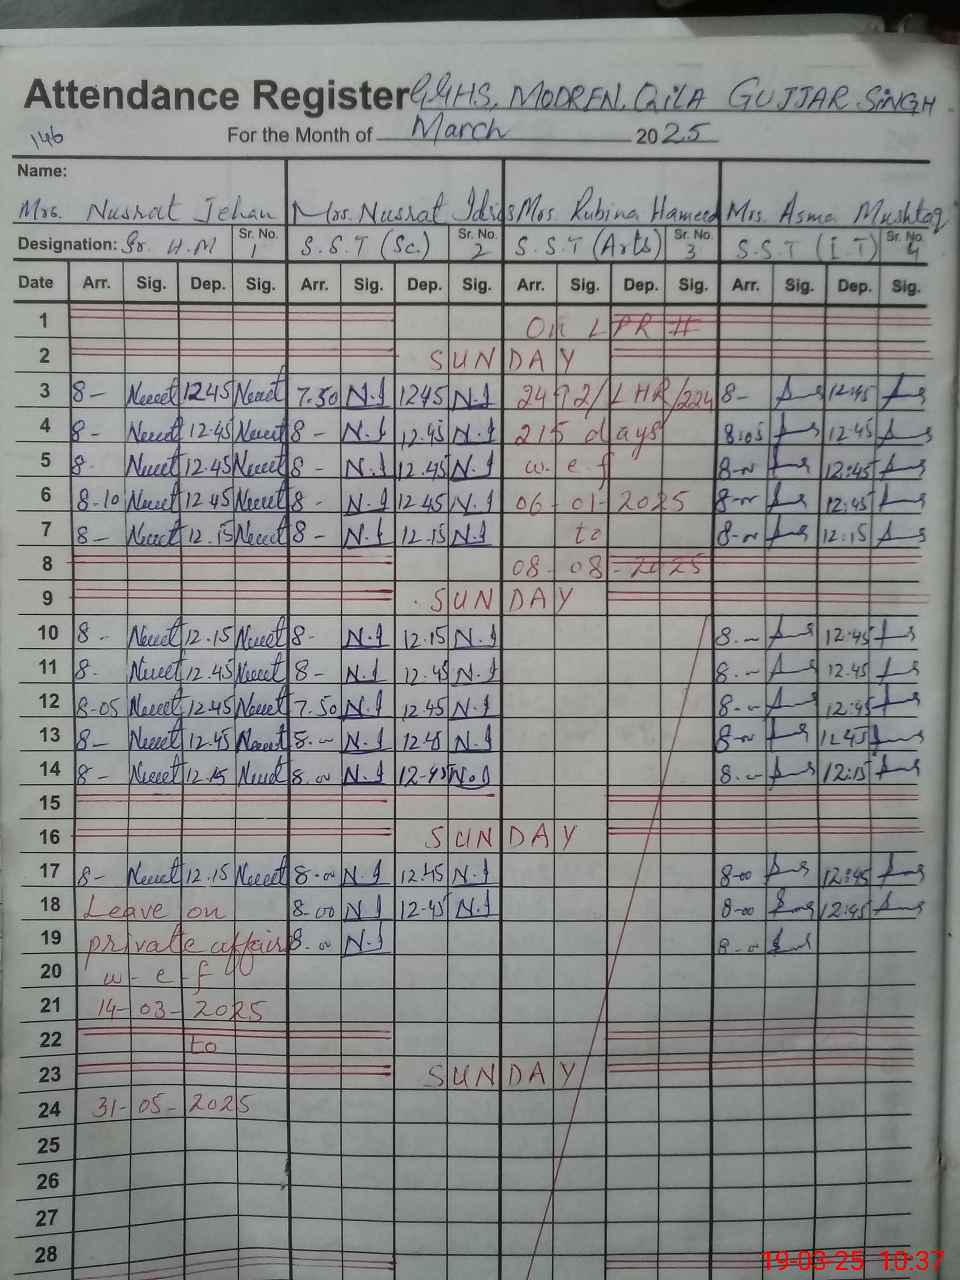 Attendance Register GGHS, MODREN, QILA GUJJAR SINGH
146 For the Month of March 2025
Name:
Mrs. Nusrat Jehan Mrs. Nusrat Idris Mrs. Rubina Hameed Mrs. Asma Mushtaq
Designation: Sr. H.M Sr. No. 1 S.S.T (Sc.) Sr. No. 2 S.S.T (Arts) Sr. No. 3 S.S.T (I.T) Sr. No. 4
Date Arr. Sig. Dep. Sig. Arr. Sig. Dep. Sig. Arr. Sig. Dep. Sig. Arr. Sig. Dep. Sig.
1 On LPR #
2 SUNDAY
3 8- 1245 7.50 N.I 1245 N.I 2492/LHR/224 8- 12:45
4 8- 12.45 8- N.I 12.45 N.I 215 days 8.05 12.45
5 8- 12.45 8- N.I 12.45 N.I w.e.f 8- 12:45
6 8-10 12.45 8- N.I 12.45 N.I 06-01-2025 8- 12:45
7 8- 12.15 8- N.I 12.15 N.I to 8- 12:15
8 08-08-2025
9 SUNDAY
10 8- 12.15 8- N.I 12.15 N.I 8.- 12:45
11 8- 12.45 8- N.I 12.45 N.I 8.- 12.45
12 8-05 12.45 7.50 N.I 12.45 N.I 8.- 12:45
13 8- 12.45 8.- N.I 12.45 N.I 8- 12.45
14 8- 12.15 8.00 N.I 12-45 N.I 8.- 12:15
15
16 SUNDAY
17 8- 12.15 8-00 N.I 12.45 N.I 8-00 12:45
18 Leave on 8-00 N.I 12-45 N.I 8-00 12:45
19 private affair 8.00 N.I 8-0
20 w-e-f
21 14-03-2025
22 to
23 SUNDAY
24 31-05-2025
25
26
27
28
19-03-25 10:37